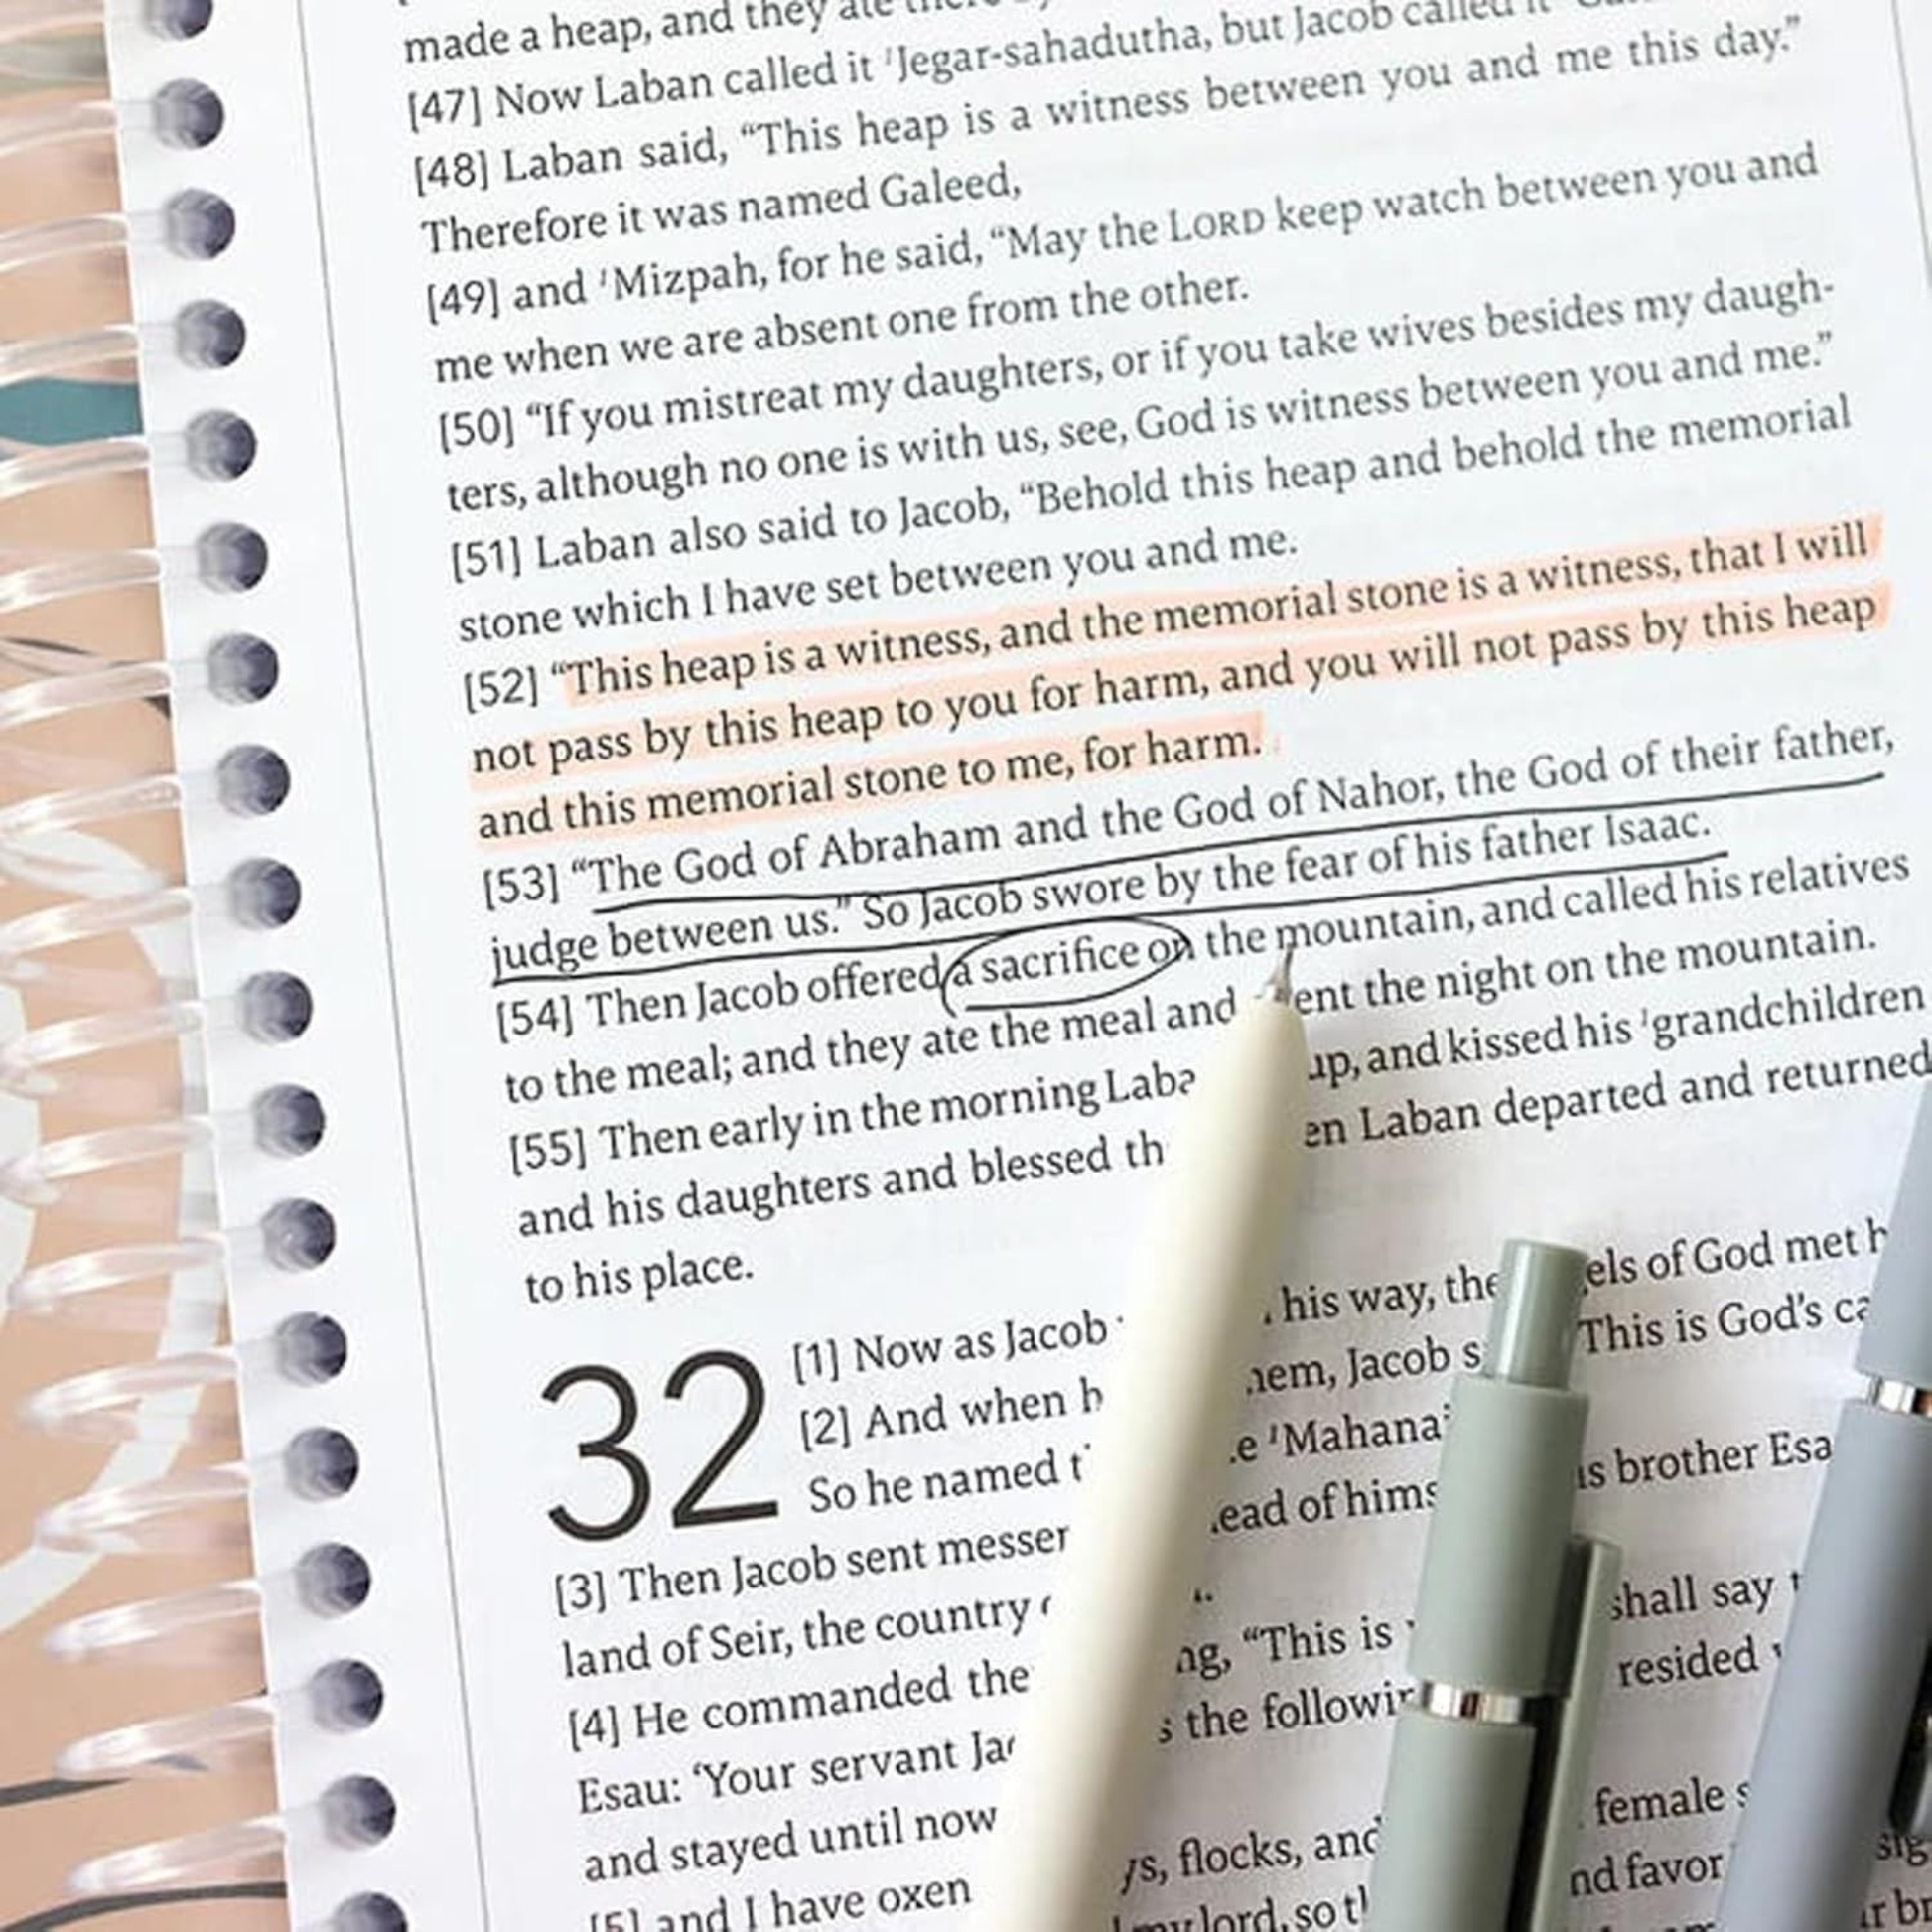 made a heap, and they ate
[47] Now Laban called it ¹Jegar-sahadutha, but Jacob called it
[48] Laban said, “This heap is a witness between you and me this day.”
Therefore it was named Galeed,
[49] and ¹Mizpah, for he said, “May the LORD keep watch between you and
me when we are absent one from the other.
[50] “If you mistreat my daughters, or if you take wives besides my daugh-
ters, although no one is with us, see, God is witness between you and me.”
[51] Laban also said to Jacob, “Behold this heap and behold the memorial
stone which I have set between you and me.
[52] “This heap is a witness, and the memorial stone is a witness, that I will
not pass by this heap to you for harm, and you will not pass by this heap
and this memorial stone to me, for harm.
[53] “The God of Abraham and the God of Nahor, the God of their father,
judge between us.” So Jacob swore by the fear of his father Isaac.
[54] Then Jacob offered a sacrifice on the mountain, and called his relatives
to the meal; and they ate the meal and ent the night on the mountain.
[55] Then early in the morning Laba up, and kissed his ¹grandchildren
and his daughters and blessed th en Laban departed and returned
to his place.
32
[1] Now as Jacob his way, the els of God met h
[2] And when h hem, Jacob s This is God’s ca
So he named t e ¹Mahanai
[3] Then Jacob sent messen ead of hims is brother Esa
land of Seir, the country
[4] He commanded the ng, “This is shall say
Esau: ‘Your servant Jac s the followin resided
and stayed until now
[5] and I have oxen ys, flocks, and female s
my lord, so th nd favor sig